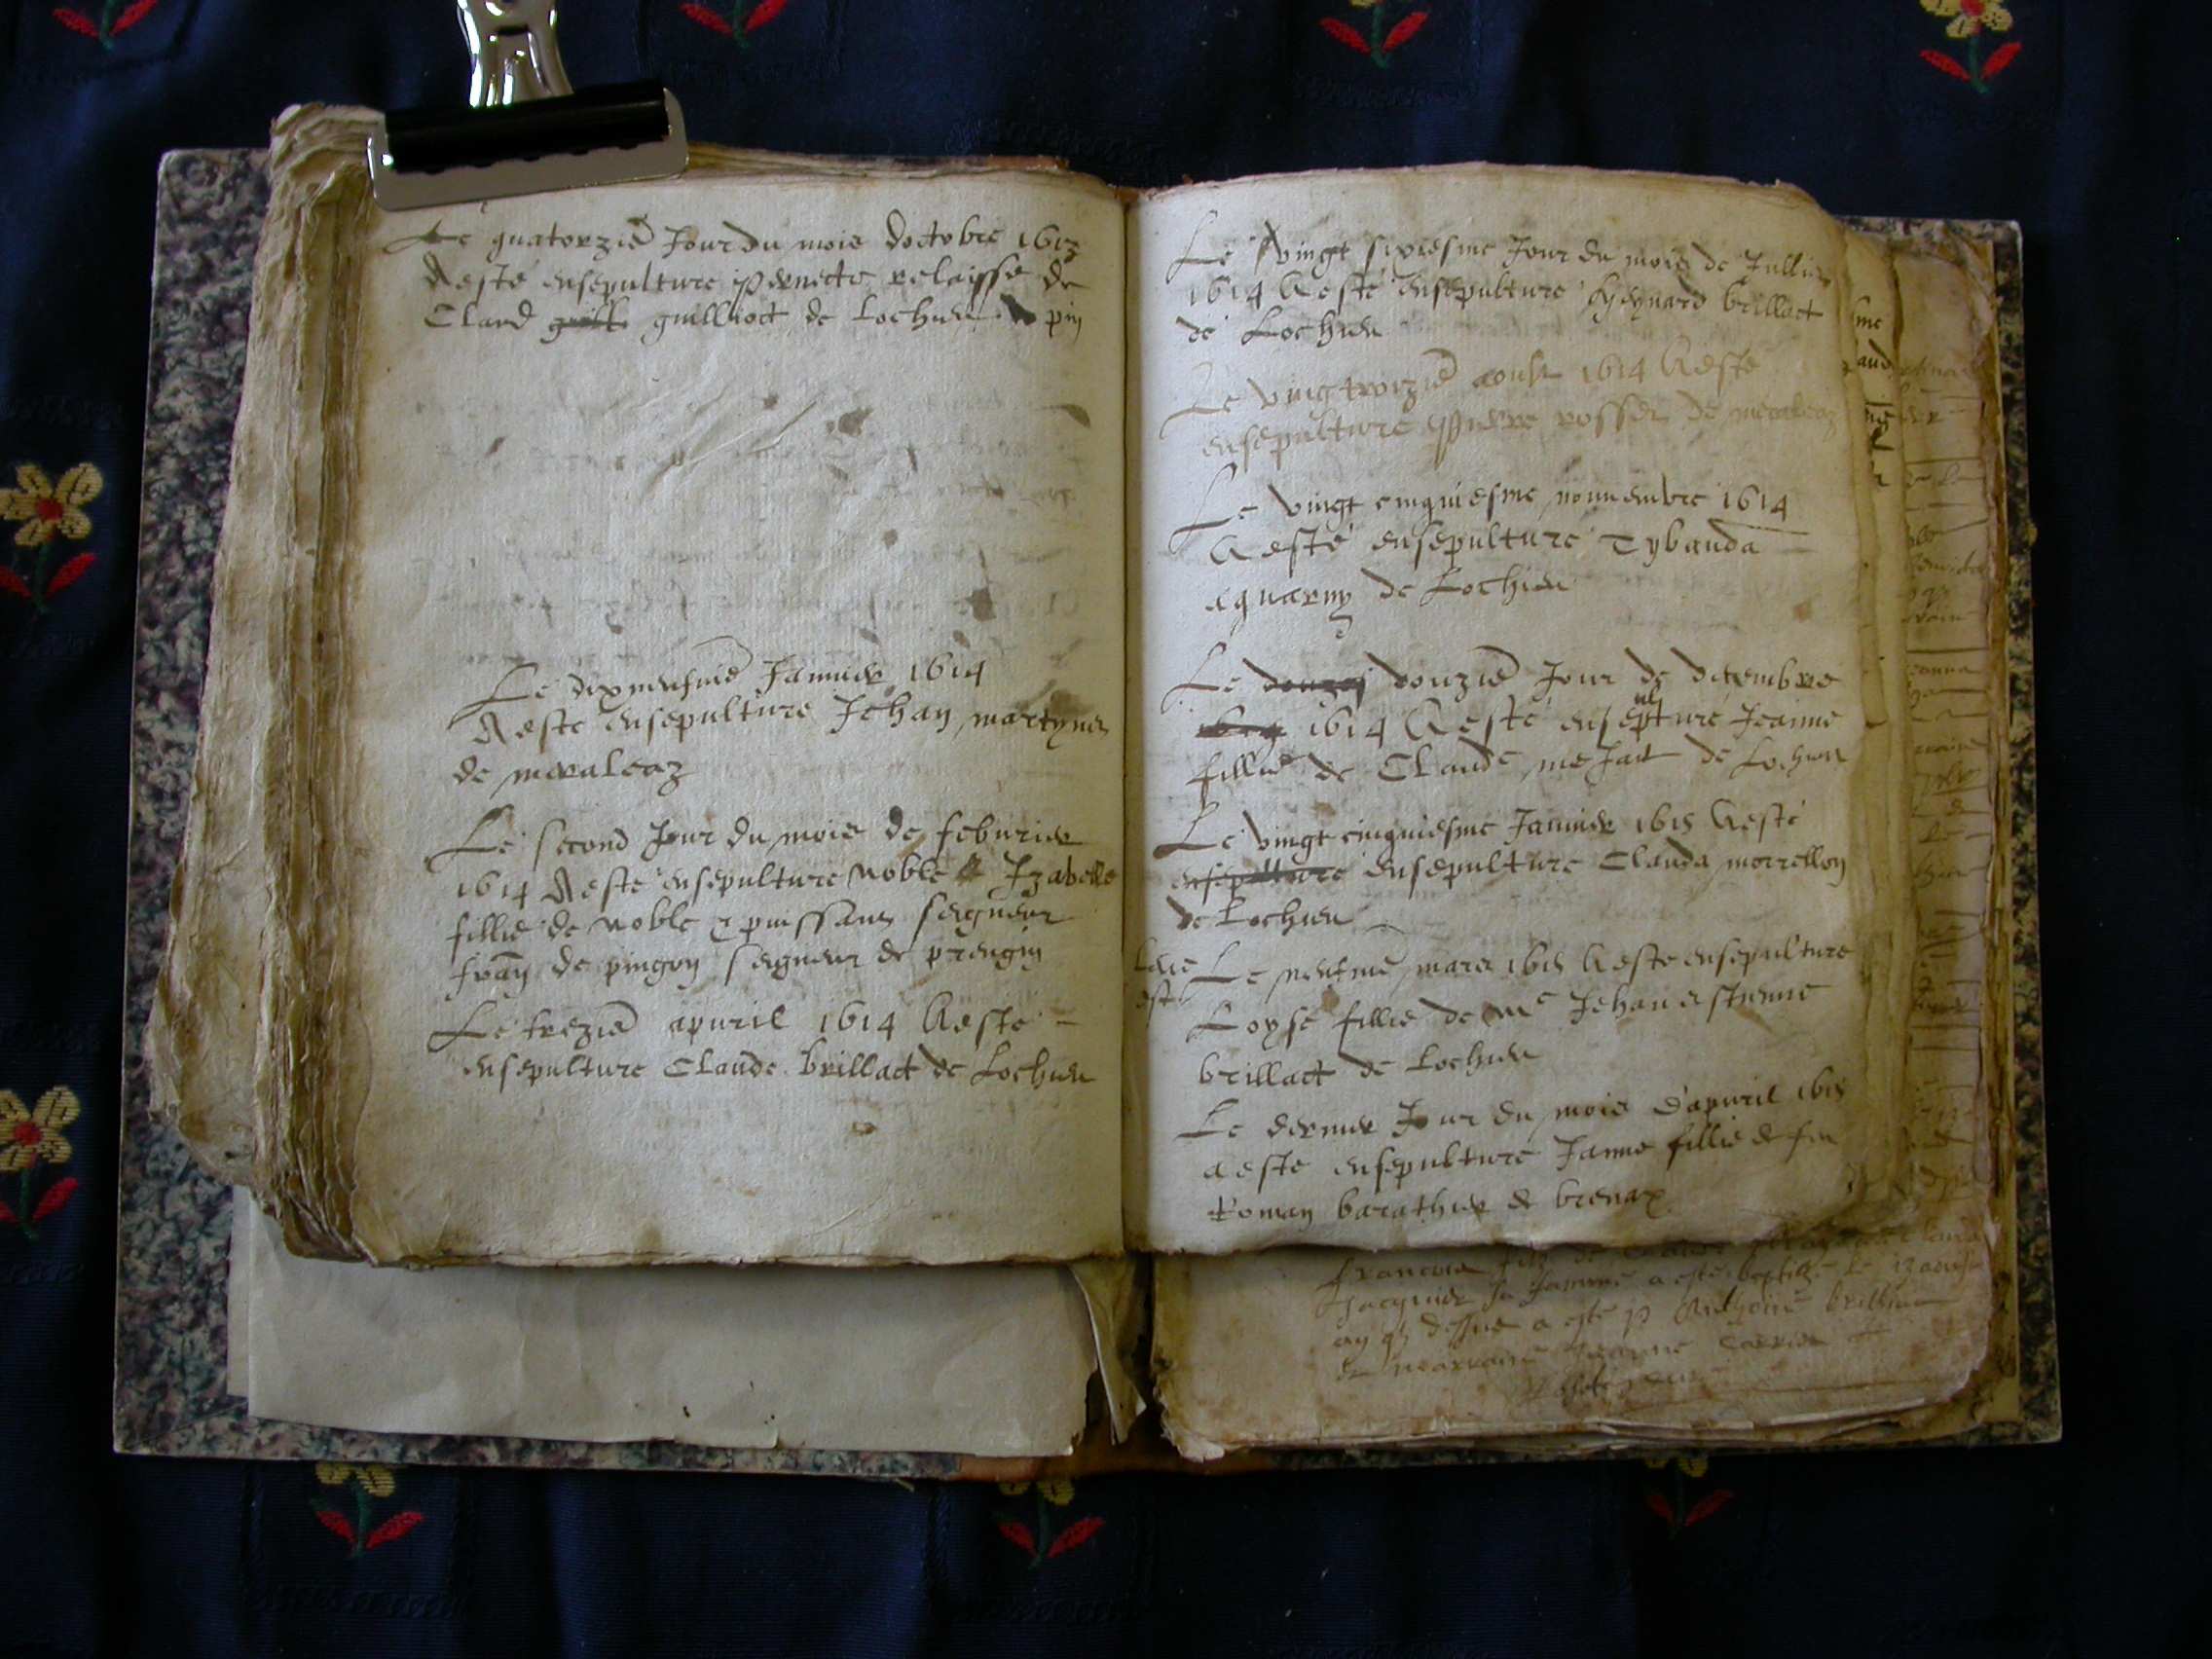 Le quatorzie Jour du mois doctobre 1613
A esté ensepulture pernette relaisse de
Claud guilliot de Lochieu
Le dixneufme Januier 1614
A esté ensepulture Jehan martyner
de meraleaz
Le second Jour du mois de feburier
1614 A esté ensepulture noble Izabelle
fillie de noble & puissant seigneur
fran de pingon seigneur de prengin
Le trezie apuril 1614 A esté
ensepulture Claude brillact de Lochieu
Le vingt sixiesme Jour du mois de Jullie
1614 A esté ensepulture Aymard brillact
de Lochieu
Le vingtroizie aoust 1614 A esté
ensepulture pierre rosset de meraleaz
Le vingt cinquiesme nouuembre 1614
A esté ensepulture Tybauda
aquarny de Lochieu
Le douzie Jour de decembre
1614 A esté ensepulture Jeanne
fillie de Claude me Jait de Lochieu
Le vingt cinquiesme Januier 1615 A esté
ensepulture ensepulture Clauda morrellon
de Lochieu
Le neufme mars 1615 A esté ensepulture
Loyse fillie de me Jehan estienne
brillact de Lochieu
Le dernier Jour du mois d'apuril 1615
a esté ensepulture Janne fillie de feu
Roman barathier de brenaz
francois filz de Claude
Jacquier sa famme a esté baptizé le 13 aoust
a esté p Anthoine brillat
marraine Jeanne